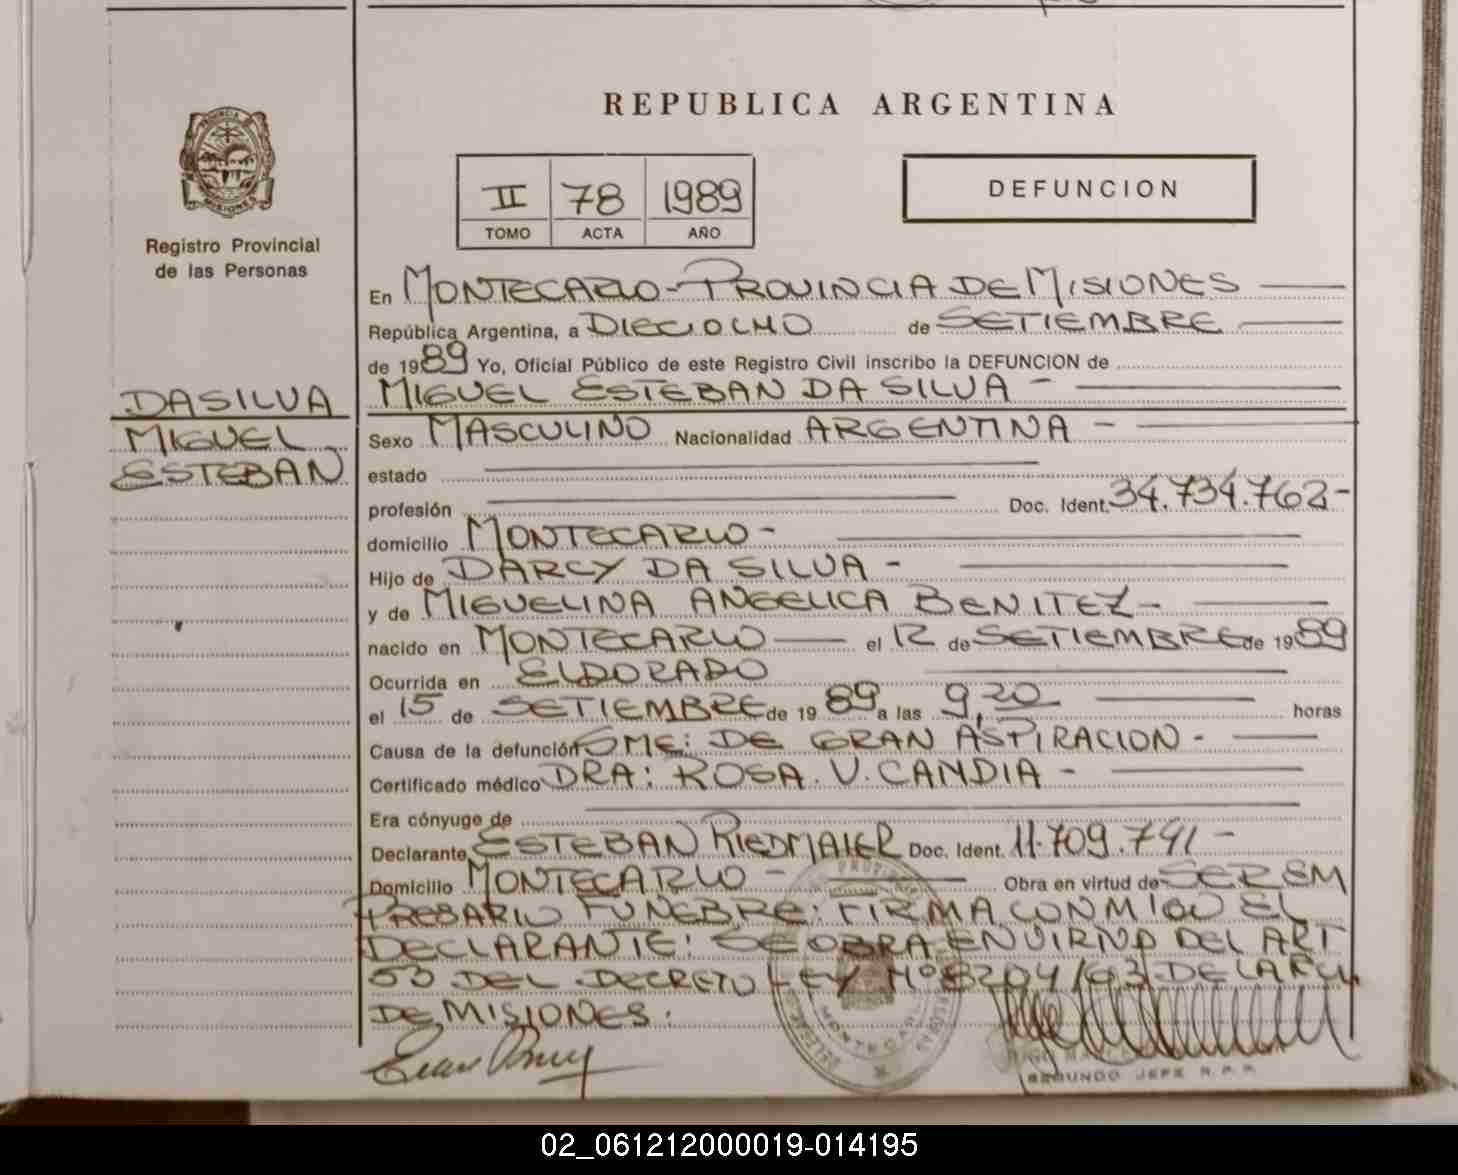 REPUBLICA ARGENTINA
II 78 1989
TOMO ACTA AÑO
DEFUNCION
PROVINCIA DE MISIONES
Registro Provincial
de las Personas
DA SILVA
MIGUEL
ESTEBAN
En MONTECARLO - PROVINCIA DE MISIONES
República Argentina, a DIECIOCHO de SETIEMBRE
de 1989 Yo, Oficial Público de este Registro Civil inscribo la DEFUNCION de
MIGUEL ESTEBAN DA SILVA -
Sexo MASCULINO Nacionalidad ARGENTINA -
estado
profesión Doc. Ident. 34.734.762-
domicilio MONTECARLO -
Hijo de DARCY DA SILVA -
y de MIGUELINA ANGELICA BENITEZ -
nacido en MONTECARLO el 12 de SETIEMBRE de 1989
Ocurrida en ELDORADO
el 15 de SETIEMBRE de 1989 a las 9,20 horas
Causa de la defunción SME: DE GRAN ASPIRACION -
Certificado médico DRA: ROSA. V. CANDIA -
Era cónyuge de
Declarante ESTEBAN RIEDMAIER Doc. Ident. 11.709.741 -
Domicilio MONTECARLO - Obra en virtud de SER EM
PRESARIO FUNEBRE: FIRMA CONMIGO EL
DECLARANTE: SE OBRA EN VIRTUD DEL ART
53 DEL DECRETO LEY Nº 8204/63 DE LA PCIA
DE MISIONES:
MONTECARLO
SEGUNDO JEFE R.P.P.
02_061212000019-014195